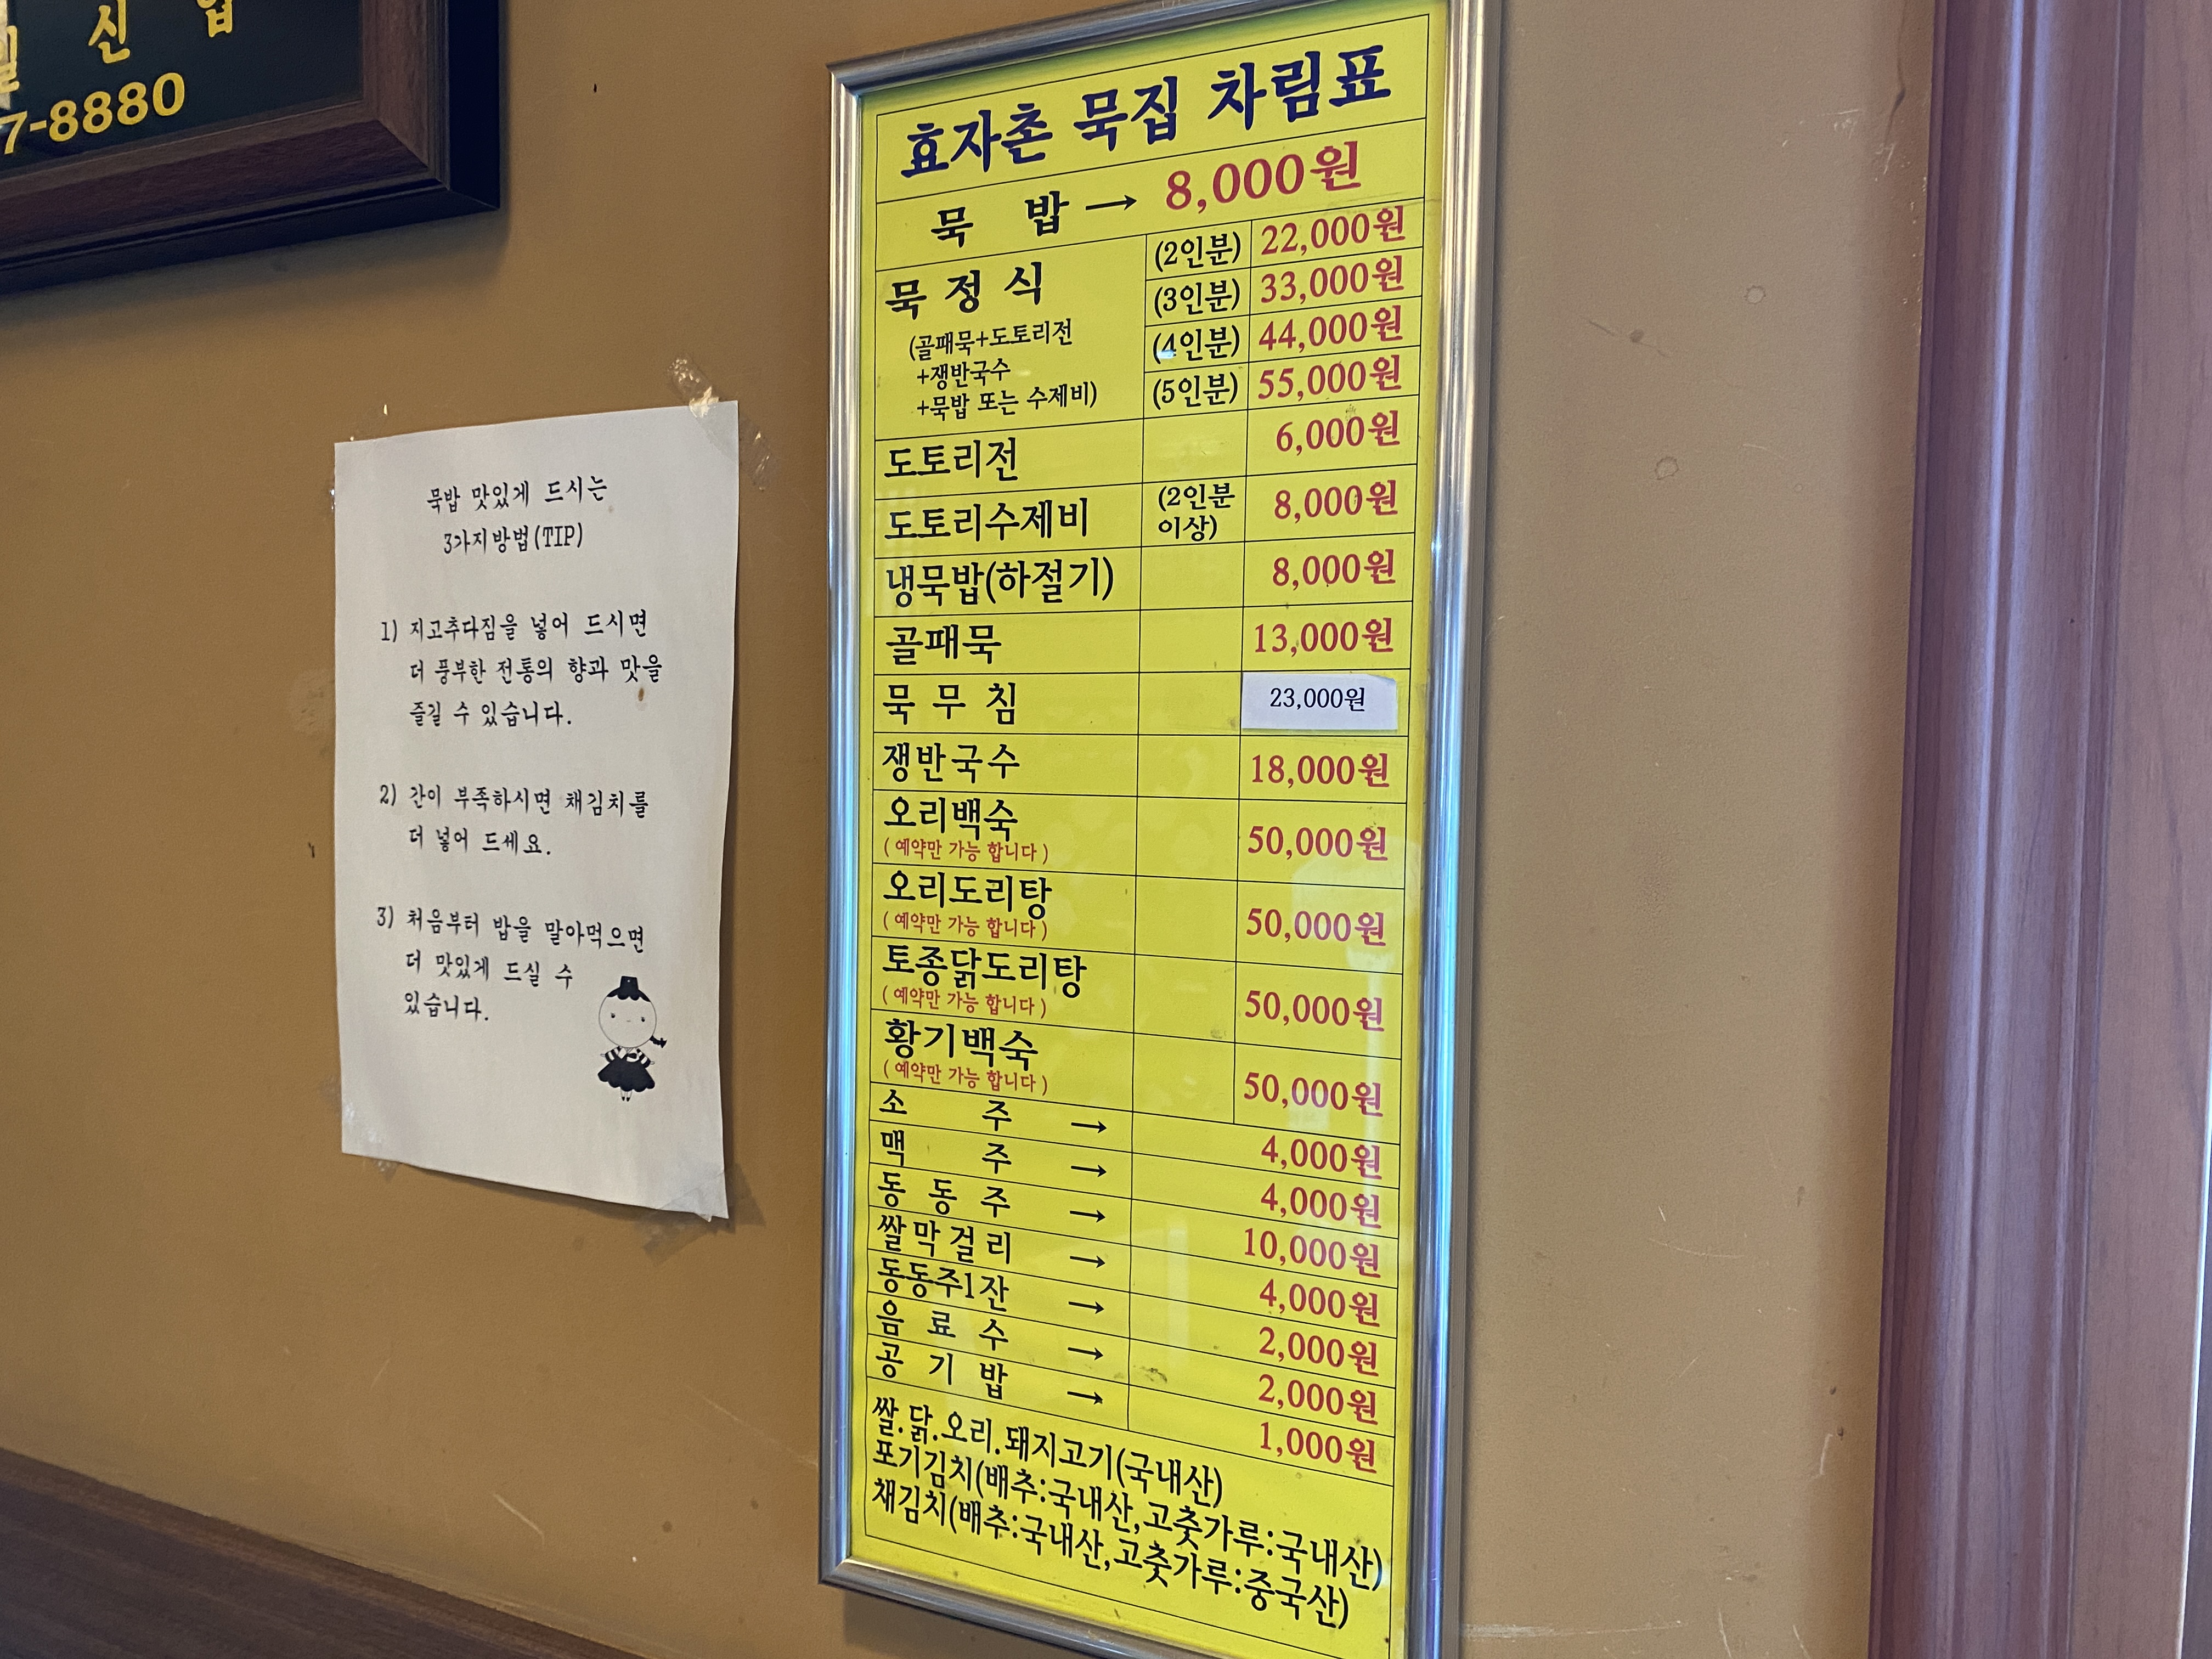 신
7-8880
묵밥 맛있게 드시는
3가지방법(TIP)
1) 지고추다짐을 넣어 드시면
더 풍부한 전통의 향과 맛을
즐길 수 있습니다.
2) 간이 부족하시면 채김치를
더 넣어 드세요.
3) 처음부터 밥을 말아먹으면
더 맛있게 드실 수
있습니다.
효자촌 묵집 차림표
묵 밥 → 8,000원
묵 정 식 (2인분) 22,000원
(3인분) 33,000원
(4인분) 44,000원
(5인분) 55,000원
(골패묵+도토리전
+쟁반국수
+묵밥 또는 수제비)
도토리전 6,000원
도토리수제비 (2인분 이상) 8,000원
냉묵밥(하절기) 8,000원
골패묵 13,000원
묵 무 침 23,000원
쟁반국수 18,000원
오리백숙 50,000원
( 예약만 가능 합니다 )
오리도리탕 50,000원
( 예약만 가능 합니다 )
토종닭도리탕 50,000원
( 예약만 가능 합니다 )
황기백숙 50,000원
( 예약만 가능 합니다 )
소 주 → 4,000원
맥 주 → 4,000원
동 동 주 → 10,000원
쌀막걸리 → 4,000원
동동주1잔 → 2,000원
음 료 수 → 2,000원
공 기 밥 → 1,000원
쌀.닭.오리.돼지고기(국내산)
포기김치(배추:국내산,고춧가루:국내산)
채김치(배추:국내산,고춧가루:중국산)